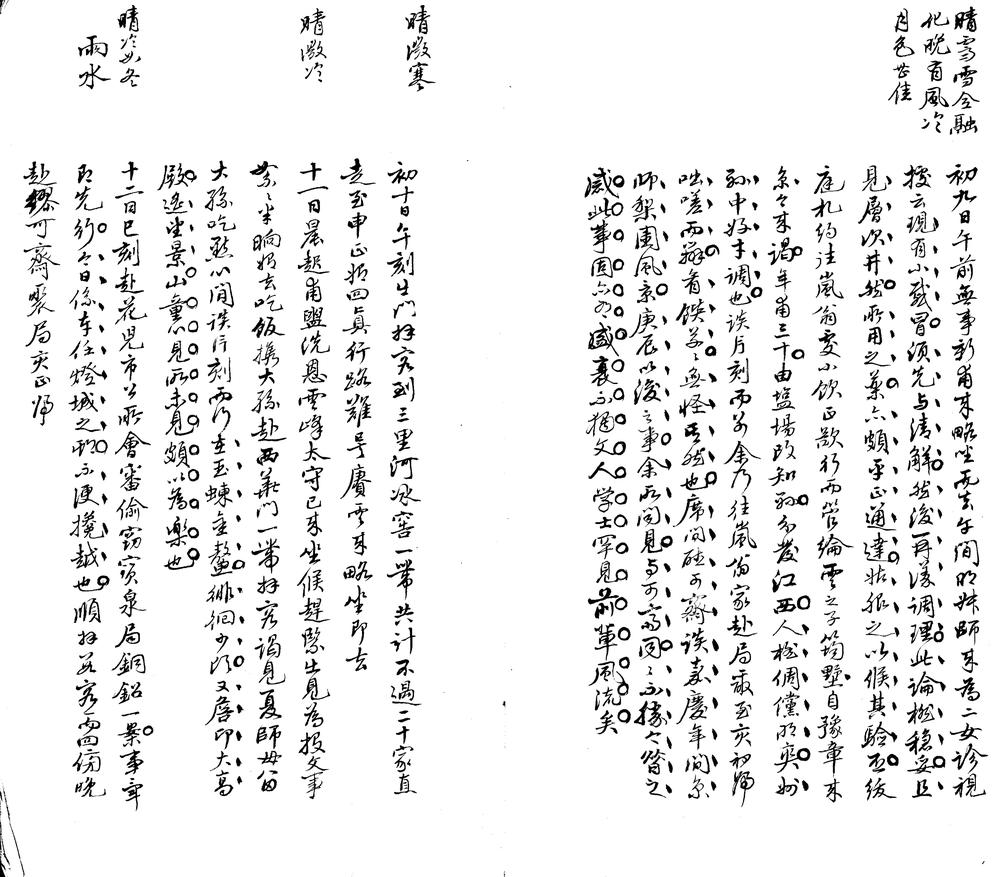 晴雪雪全融
化晚有風冷
月色甚佳
初九日午前無事新甫來略坐而去午間明姝師來為二女診視
據云現有小感冒須先与清解然後再議調理此論極穩妥且
見層次井然所用之藥亦頗平正通達姑服之以候其驗否緩
庭札約往嵐翁處小飲正歇行而管綸雲之子筠墅自豫章來
京來謁年甫三十由塩場改知縣分發江西人極倜儻明爽州
縣中好才調也談片刻而去余乃往嵐翁家赴局飯至亥初歸
咄嗟而辦肴饌草草無怪其然也席間硅可齋談嘉慶年間京
師梨園風景庚辰以後之事余所聞見与可齋同不勝今昔之
感此事固亦有盛衰不獨文人学士罕見前輩風流矣
晴微寒
初十日午刻出門拜客到三里河冰窖一帶共計不過二十家直
走至申正始回真行路難号賡雲來略坐即去
晴微冷
十一日晨起甫盥洗恩雲峰太守已來坐候趕緊出見為报文事
絮絮半晌始去吃飯携大孫赴西華門一帶拜客謁見夏師母留
大孫吃点心閒談片刻而行至玉蝀金鰲徘徊少頃又繞印大高
殿遙望景山童心見所未見頗以為樂也
晴冷如冬
雨水
十二日巳刻赴花兒市公所會審偷竊寶泉局銅鉛一案事畢
即先行今日係奉任燈城之班不便攙越也順拜數客而回傍晚
赴繆可齋飯局亥正歸